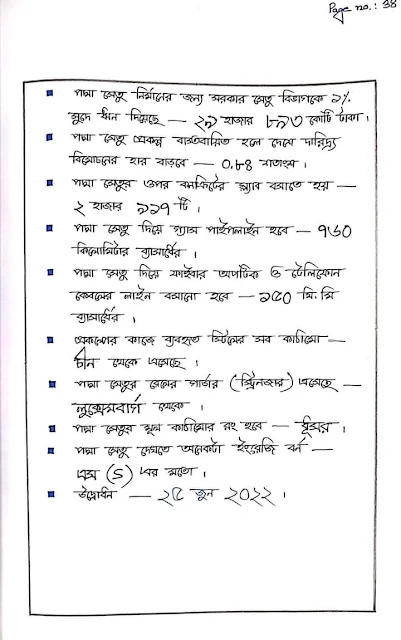 Page no. : 38
পদ্মা সেতু নির্মানের জন্য সরকার সেতু বিভাগকে ১%
সুদে ঋন দিয়েছে — ২৯ হাজার ৮৯৩ কোটি টাকা।
পদ্মা সেতু প্রকল্প বাস্তবায়িত হলে দেশে দারিদ্র্য
বিমোচনের হার বাড়বে — ০.৮৪ শতাংশ।
পদ্মা সেতুর ওপর কনক্রিটের স্ল্যাব বসাতে হয় —
২ হাজার ৯১৭ টি।
পদ্মা সেতু দিয়ে গ্যাস পাইপলাইন হবে — ৭৬০
মিলিমিটার ব্যাসার্ধের।
পদ্মা সেতু দিয়ে ফাইবার অপটিক ও টেলিফোন
কেবলের লাইন বসানো হবে — ১৫০ মি.মি
ব্যাসার্ধের।
প্রকল্পের কাজে ব্যবহৃত স্টিলের সব কাঠামো —
চীন থেকে এসেছে।
পদ্মা সেতুর রেলের গার্ডার (স্ট্রিনজার) এসেছে —
লুক্সেমবার্গ থেকে।
পদ্মা সেতুর মূল কাঠামোর রং হবে — ধূসর।
পদ্মা সেতু দেখতে অনেকটা ইংরেজি বর্ন —
এস (S) এর মতো।
উদ্বোধন — ২৫ জুন ২০২২।